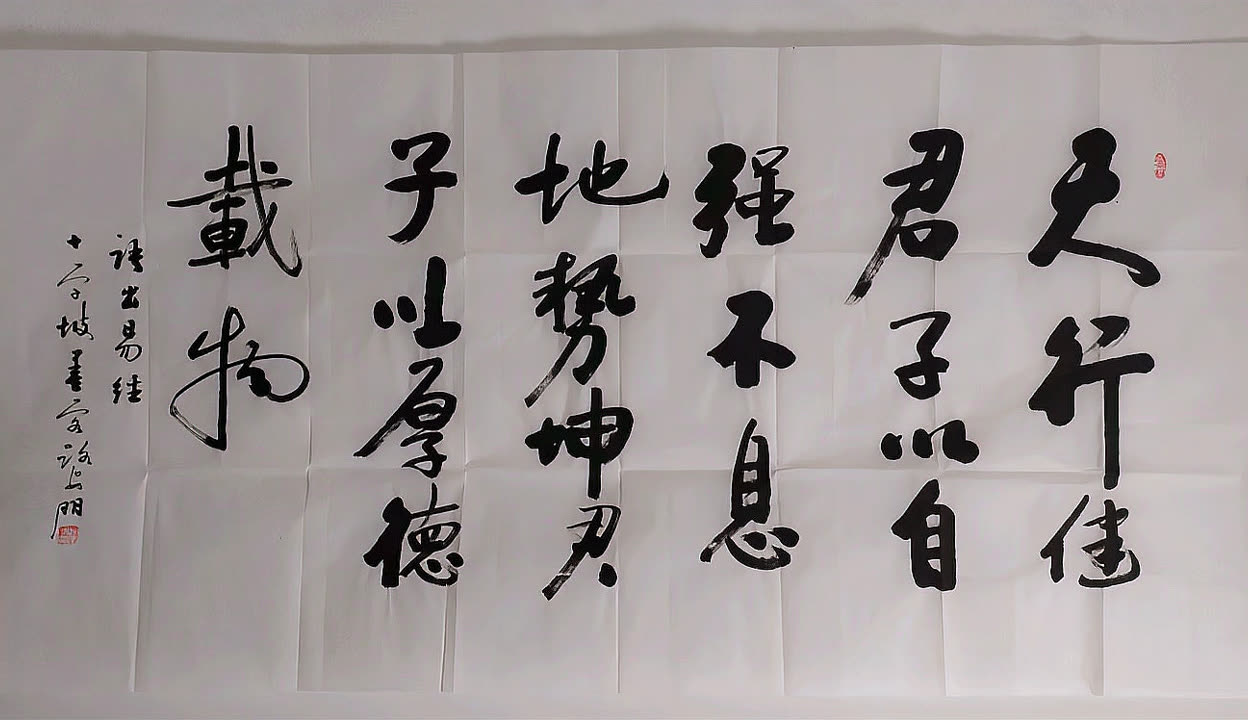 天行健
君子以自
强不息
地势坤君
子以厚德
載物
语出易经
十字坡